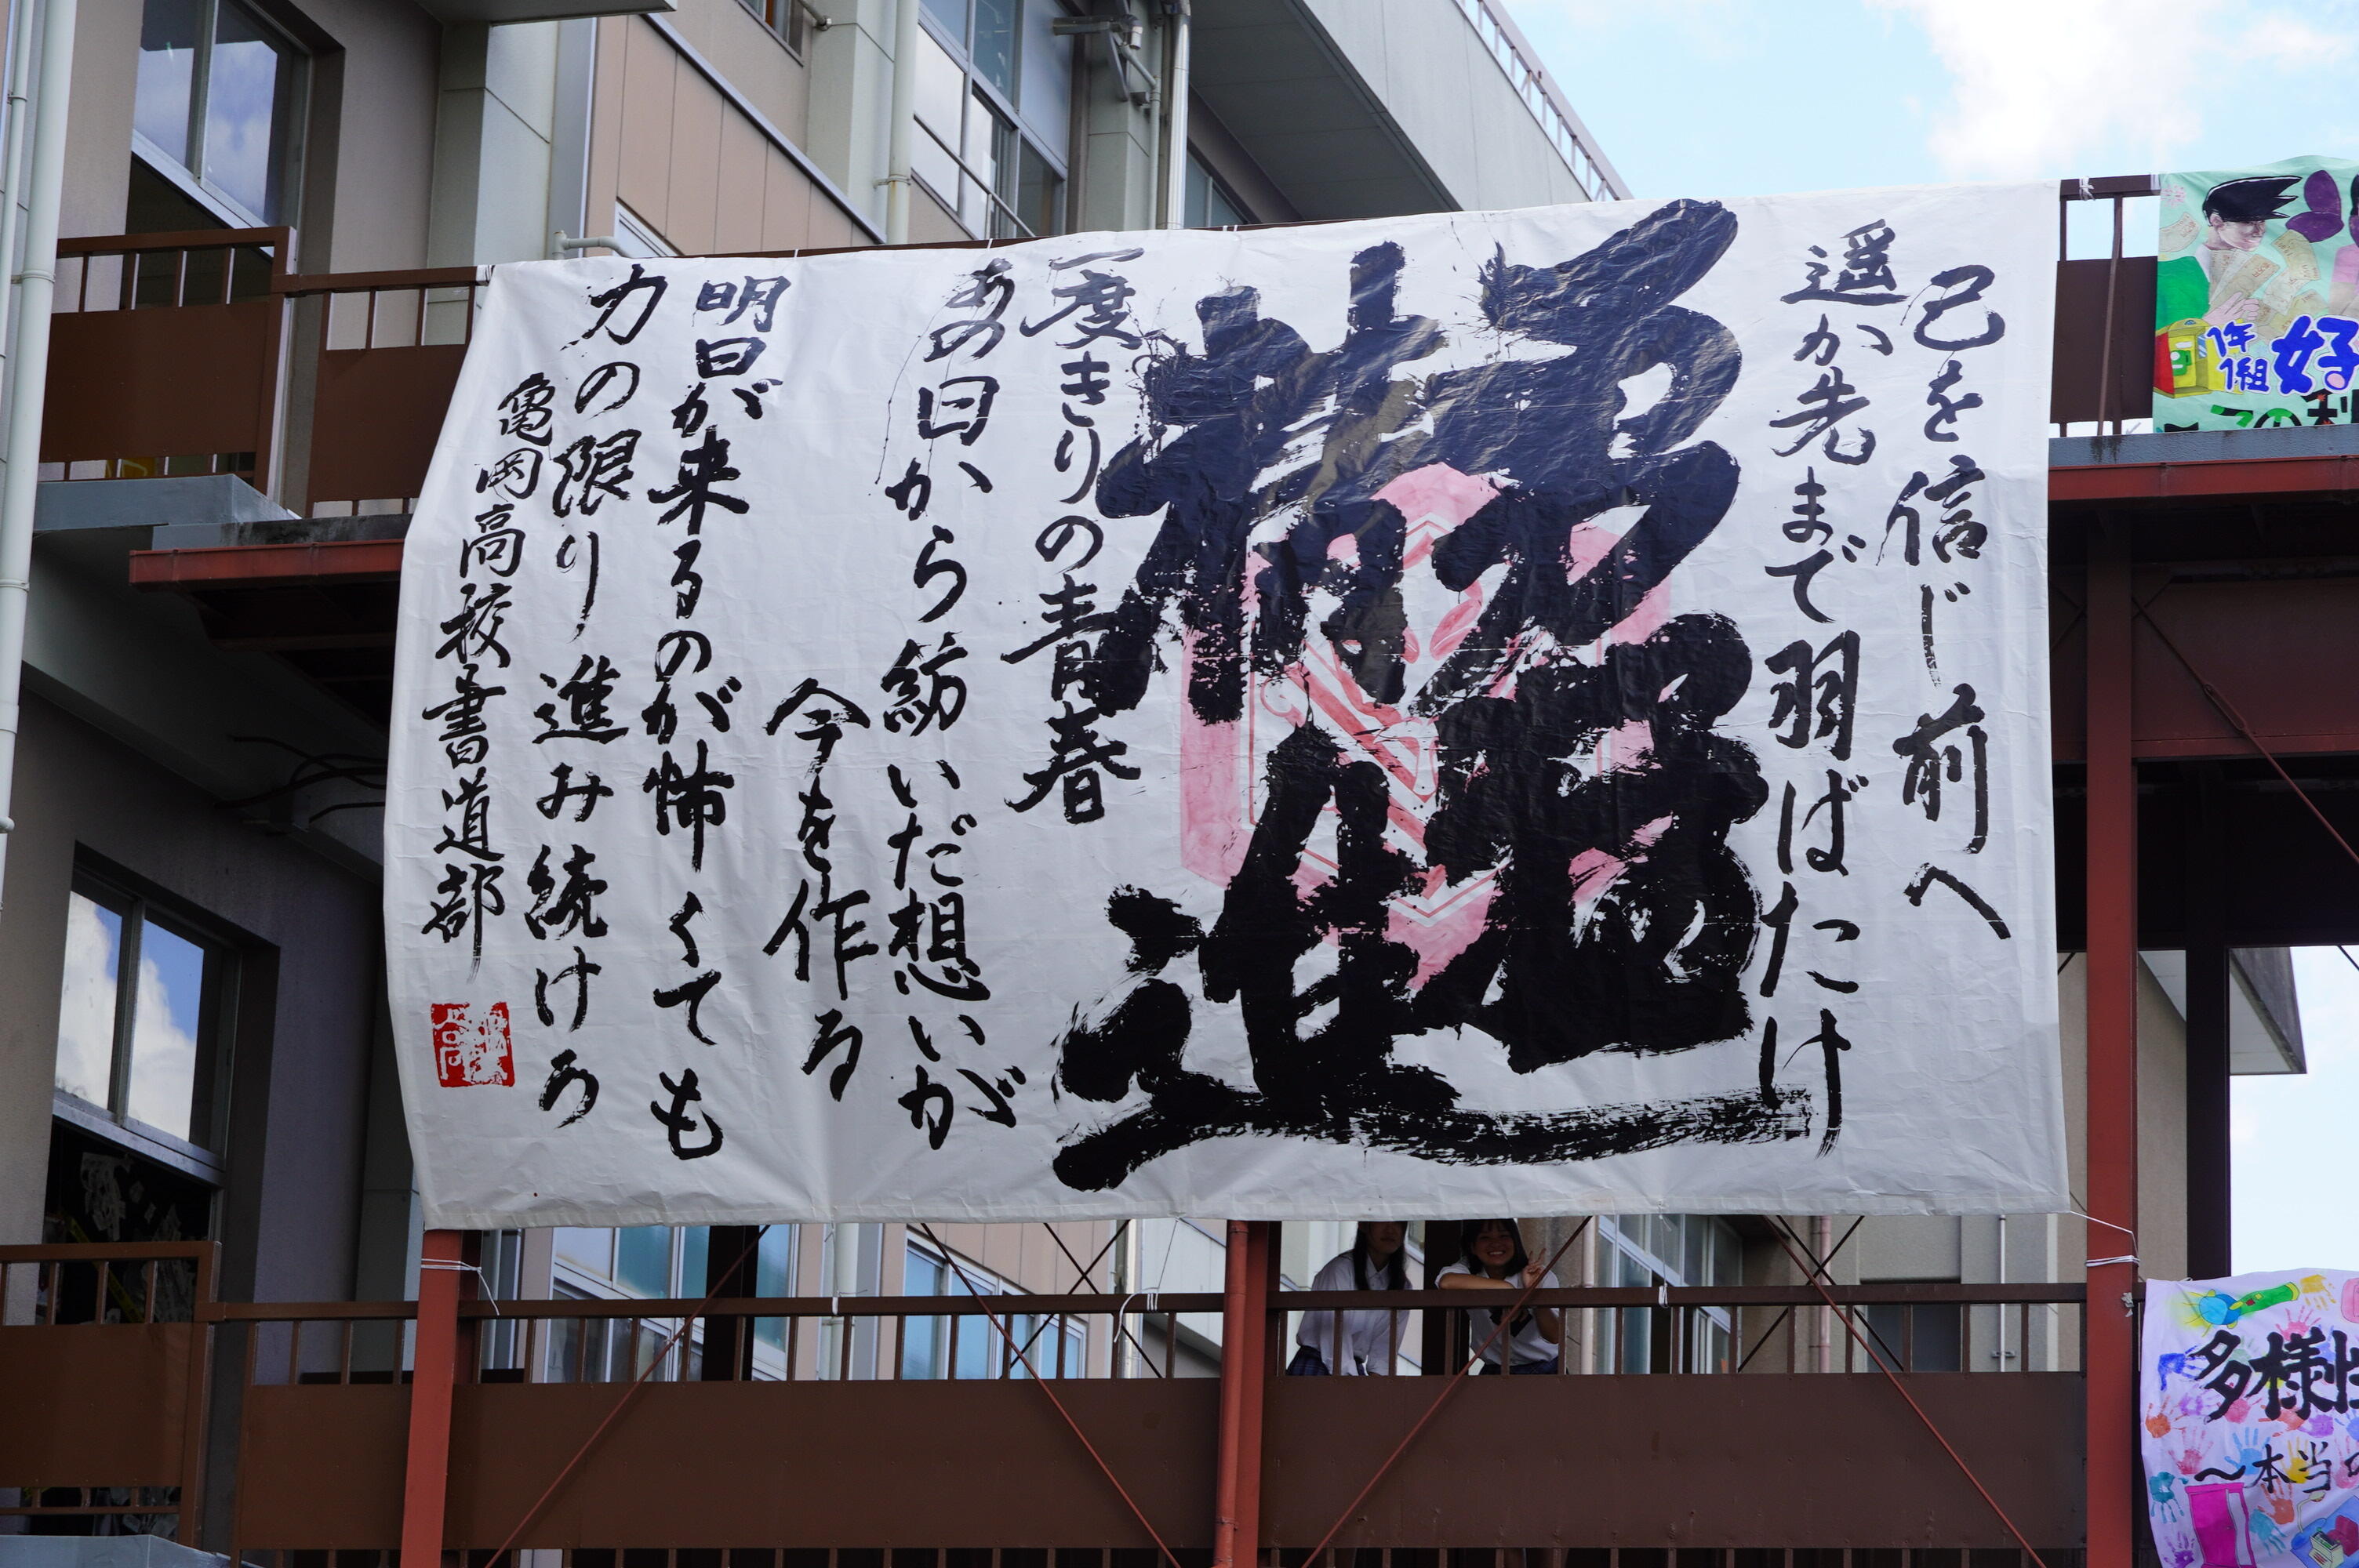 己を信じ前へ
遥か先まで羽ばたけ
勇猛
精進
一度きりの青春
あの日から紡いだ想いが
今を作る
明日が来るのが怖くても
力の限り進み続けろ
亀岡高校書道部
1年
1組
好
多様性
～本当